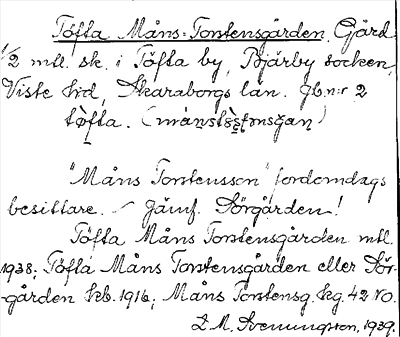 Töfta Måns-Torstensgården. Gård
1/2 mtl. sk. i Töfta by, Bjärby socken,
Viste hd, Skaraborgs län. Jb.n:r 2
tȯfta. (
"Måns Torstensson" fordomdags
besittare. – Jämf. Sörgården!
Töfta Måns Torstensgården mtl.
1938; Töfta Måns Torstensgården eller Sör-
gården kb. 1916; Måns Torstensg. kg. 42 NO.
L. M. Svenungsson, 1939.